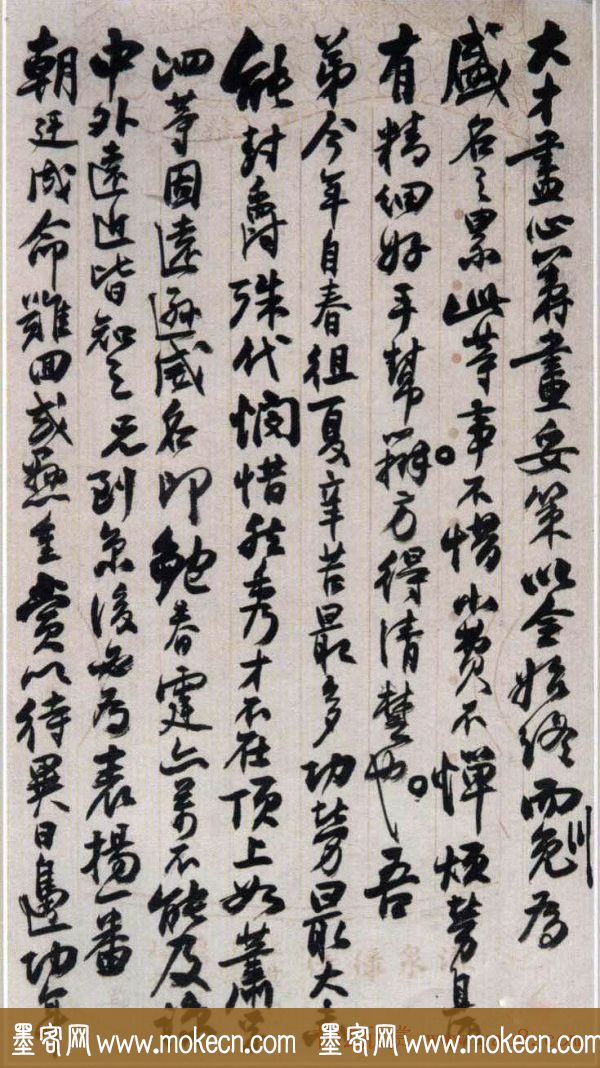 大才盡心籌畫妥策以全始終而免為
盛名之累此等事不惜小費不憚煩勞自
有精細好手幫辦方得清楚也吾
弟今年自春徂夏辛苦最多功勞最大
能封爵殊代悯惜然秀才不在頂上如蕭
泗等固遠遜威名即鮑春霆亦萬不能及
中外遠近皆知之兄到京後必為表揚一番
朝廷成命難回或懸重賞以待異日邊功
墨客网 www.mokecn.com 墨客网 www.mokecn.com 墨客网 www.mokecn.com